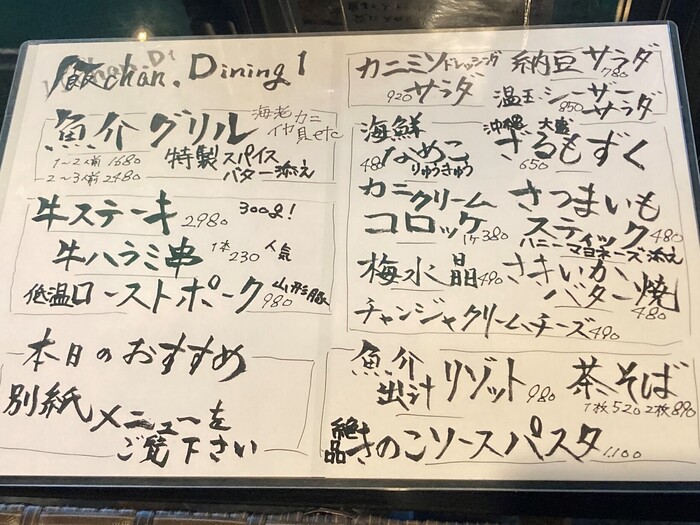 飯chan. Dining 1
魚介グリル 海老 カニ イカ 貝 etc
1〜2人前 1680
2〜3人前 2480
特製スパイスバター添え
牛ステーキ 2980 300g!
牛ハラミ串 1本 230 人気
低温ローストポーク 980 山形豚
本日のおすすめ
別紙メニューを
ご覧下さい
カニミソドレッシング
サラダ 920
納豆サラダ 780
温玉シーザー
サラダ 850
海鮮
なめこ 480
りゅうきゅう
沖縄 大盛
ざるもずく 650
カニクリーム
コロッケ 1ケ 380
さつまいも
スティック 480
ハニーマヨネーズ添え
梅水晶 490
さきいか
バター焼 480
チャンジャクリームチーズ 490
魚介
出汁リゾット 980
茶そば
1枚 520 2枚 890
絶品 きのこソースパスタ 1.100